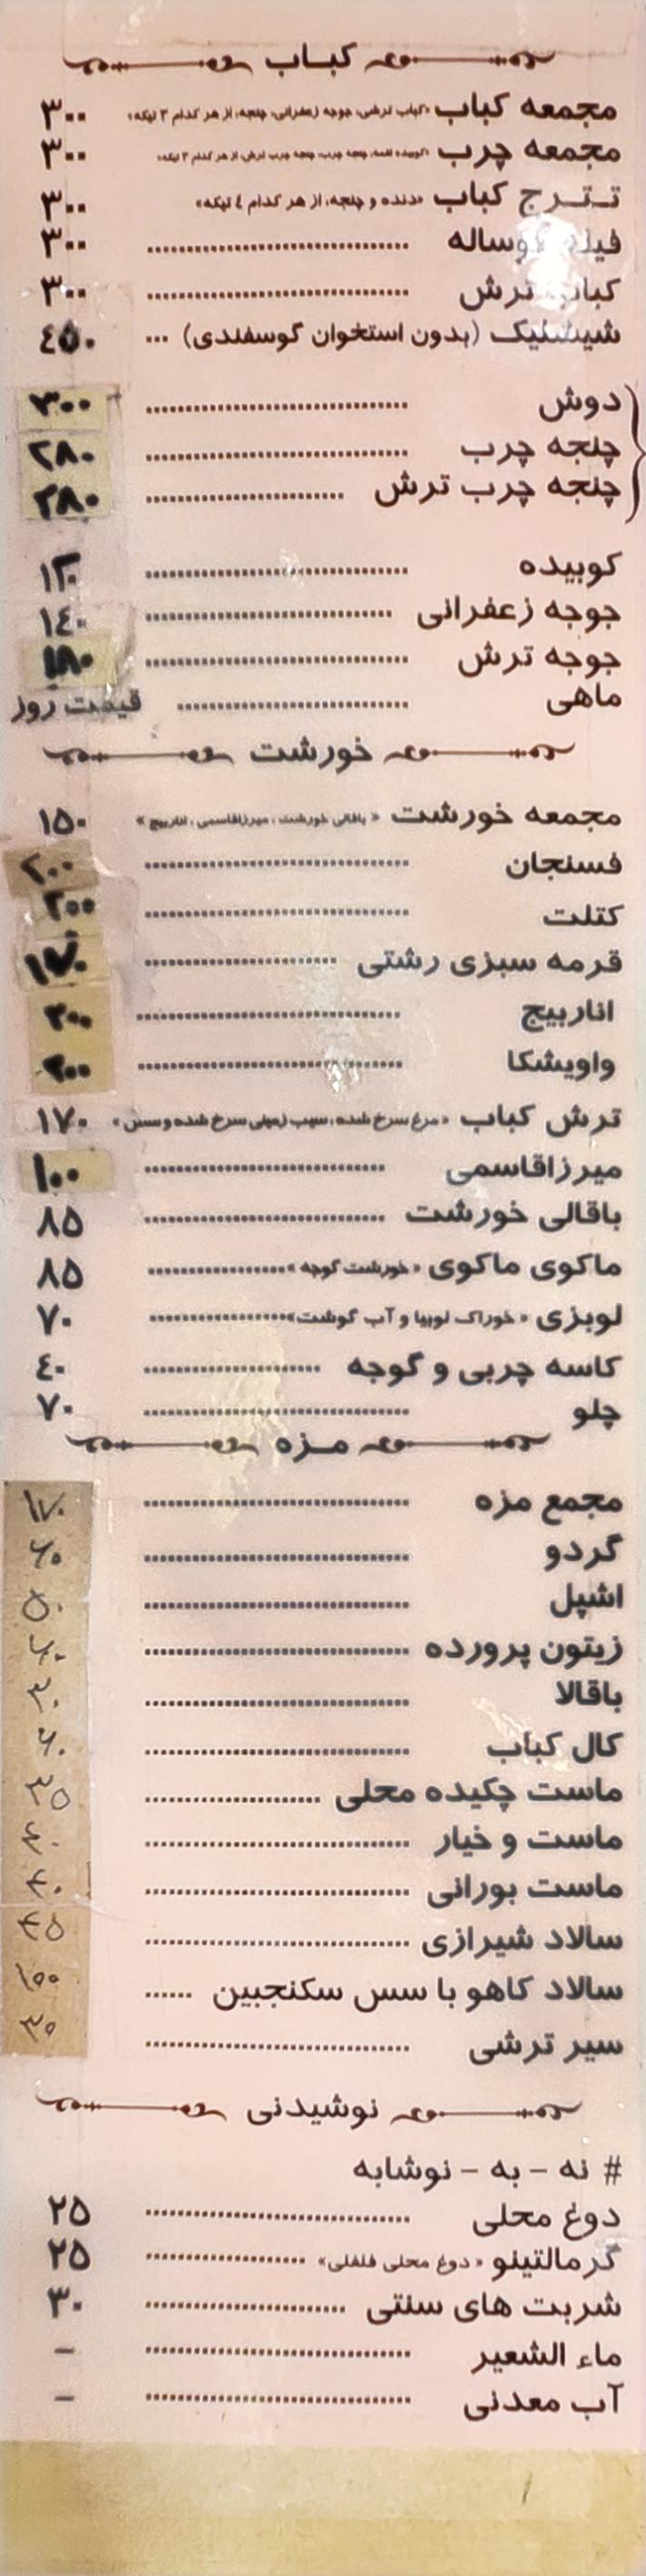 کباب
مجمعه کباب «کباب ترش، جوجه زعفرانی، چنجه، از هر کدام ۳ تیکه» ۳۰۰
مجمعه چرب از هر کدام ۳ تیکه» ۳۰۰
تـتـرج کباب «دنده و چنجه، از هر کدام ٤ تیکه» ۳۰۰
فیله گوساله ۳۰۰
کباب ترش ۳۰۰
شیشلیک (بدون استخوان گوسفندی) ... ٤۵۰
دوش ۳۰۰
چنجه چرب ۲۸۰
چنجه چرب ترش ۲۸۰
کوبیده ۱۲۰
جوجه زعفرانی ۱٤۰
جوجه ترش ۱۸۰
ماهی قیمت روز
خورشت
مجمعه خورشت « باقالی خورشت ، میرزاقاسمی ، اناربیج » ۱۵۰
فسنجان ۲۰۰
کتلت ۲۰۰
قرمه سبزی رشتی ۱۷۰
اناربیج ۲۰۰
واویشکا ۲۰۰
ترش کباب «مرغ سرخ شده ، سیب زمینی سرخ شده و سس» ۱۷۰
میرزاقاسمی ۱۰۰
باقالی خورشت ۸۵
ماکوی ماکوی «خورشت گوجه» ۸۵
لوبزی «خوراک لوبیا و آب گوشت» ۷۰
کاسه چربی و گوجه ٤۰
چلو ۷۰
مـزه
مجمع مزه ۱۷۰
گردو ۶۰
اشپل ۵۰
زیتون پرورده ۶۰
باقالا ۳۰
کال کباب ۶۰
ماست چکیده محلی ۳۵
ماست و خیار ۴۰
ماست بورانی ۴۰
سالاد شیرازی ۴۵
سالاد کاهو با سس سکنجبین ۱۰۰
سیر ترشی ۳۰
نوشیدنی
# نه - به - نوشابه
دوغ محلی ۲۵
گرمالتینو «دوغ محلی فلفلی» ۲۵
شربت های سنتی ۳۰
ماء الشعیر -
آب معدنی -